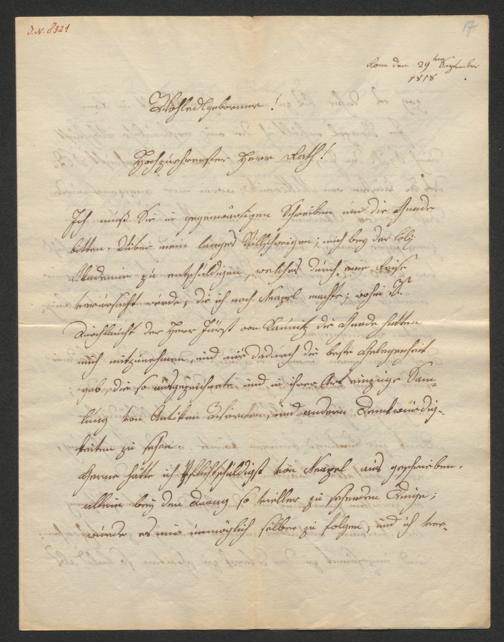 J.N. 8321
17
Rom den 29ten September
1818
Wohledlgeborner!
Hochzuverehrender Herr Rath!
Ich muß Sie in gegenwärtigen Schreiben um die Gnade
bitten, über mein langes Stillschweigen, mich bey der löbl
Akademie zu entschuldigen, welches durch eine Reise
verursacht wurde, die ich nach Neapel machte; wohin Sr
Durchlaucht der Herr Fürst von Kaunitz die Gnade hatten
mich mitzunehmen, und mir dadurch die beste Gelegenheit
gab, die so ausgezeichnete und in ihrer Art einzige Sam-
lung von Antiken und andern Kunstwürdig-
keiten zu sehen.
Gerne hätte ich Pflichtschuldigst von Neapel aus geschrieben,
allein bey dem Drang so vieller zu sehenden Dinge;
wurde es mir unmöglich selber zu folgen, und ich ver-